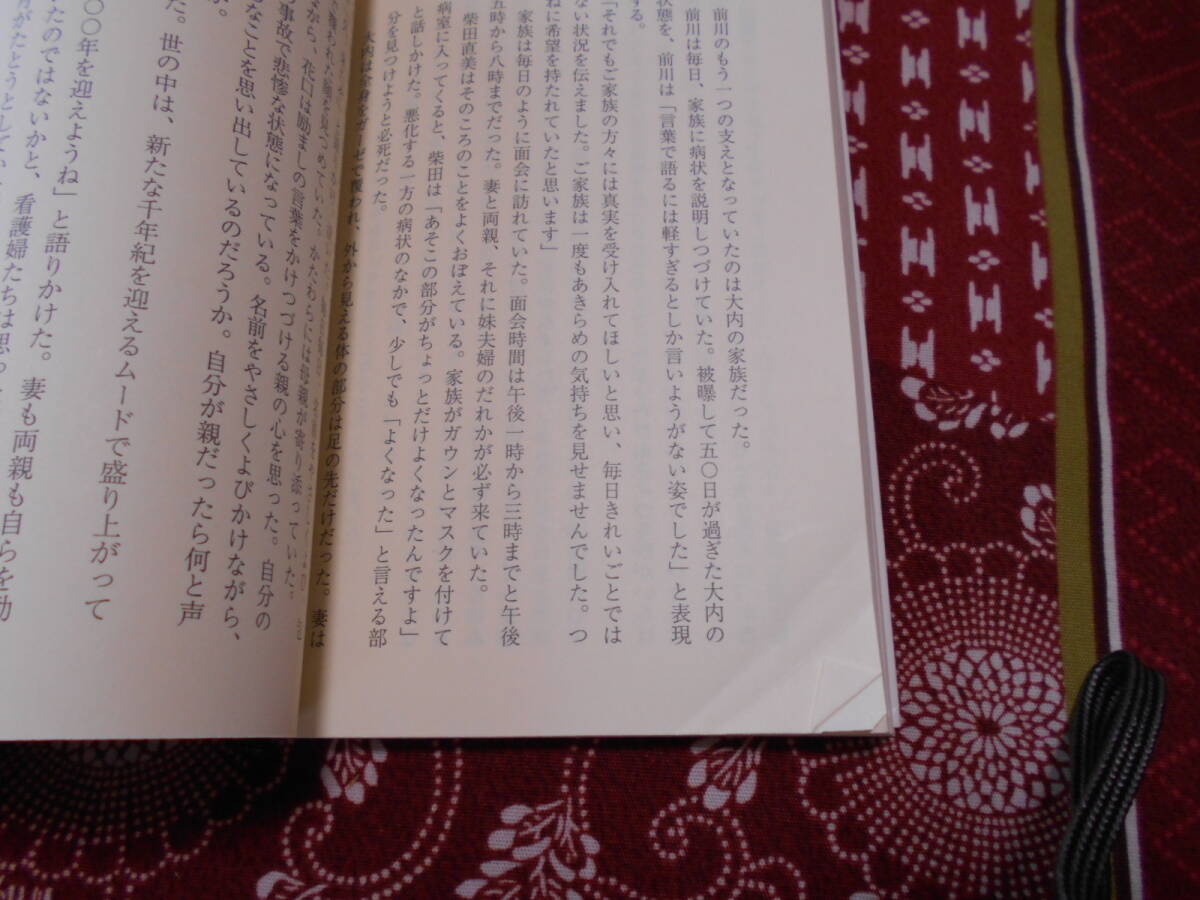 前川のもう一つの支えとなっていたのは大内の家族だった。
前川は毎日、家族に病状を説明しつづけていた。被曝して五〇日が過ぎた大内の
状態を、前川は「言葉で語るには軽すぎるとしか言いようがない姿でした」と表現
する。
「それでもご家族の方々には真実を受け入れてほしいと思い、毎日きれいごとでは
ない状況を伝えました。ご家族は一度もあきらめの気持ちを見せませんでした。つ
ねに希望を持たれていたと思います」
家族は毎日のように面会に訪れていた。面会時間は午後一時から三時までと午後
五時から八時までだった。妻と両親、それに妹夫婦のだれかが必ず来ていた。
柴田直美はそのころのことをよくおぼえている。家族がガウンとマスクを付けて
病室に入ってくると、柴田は「あそこの部分がちょっとだけよくなったんですよ」
と話しかけた。悪化する一方の病状のなかで、少しでも「よくなった」と言える部
分を見つけようと必死だった。
大内は全身をガーゼで覆われ、外から見える体の部分は足の先だけだった。妻は
つめていた。かたわらには母親が寄り添っていた。
ながら、花口は励ましの言葉をかけつづける親の心を思った。自分の
事故で悲惨な状態になっている。名前をやさしくよびかけながら、
なことを思い出しているのだろうか。自分が親だったら何と声
か。
た。世の中は、新たな千年紀を迎えるムードで盛り上がって
〇〇年を迎えようね」と語りかけた。妻も両親も自らを励
たのではないかと、看護婦たちは思っ
がたとうとしてい